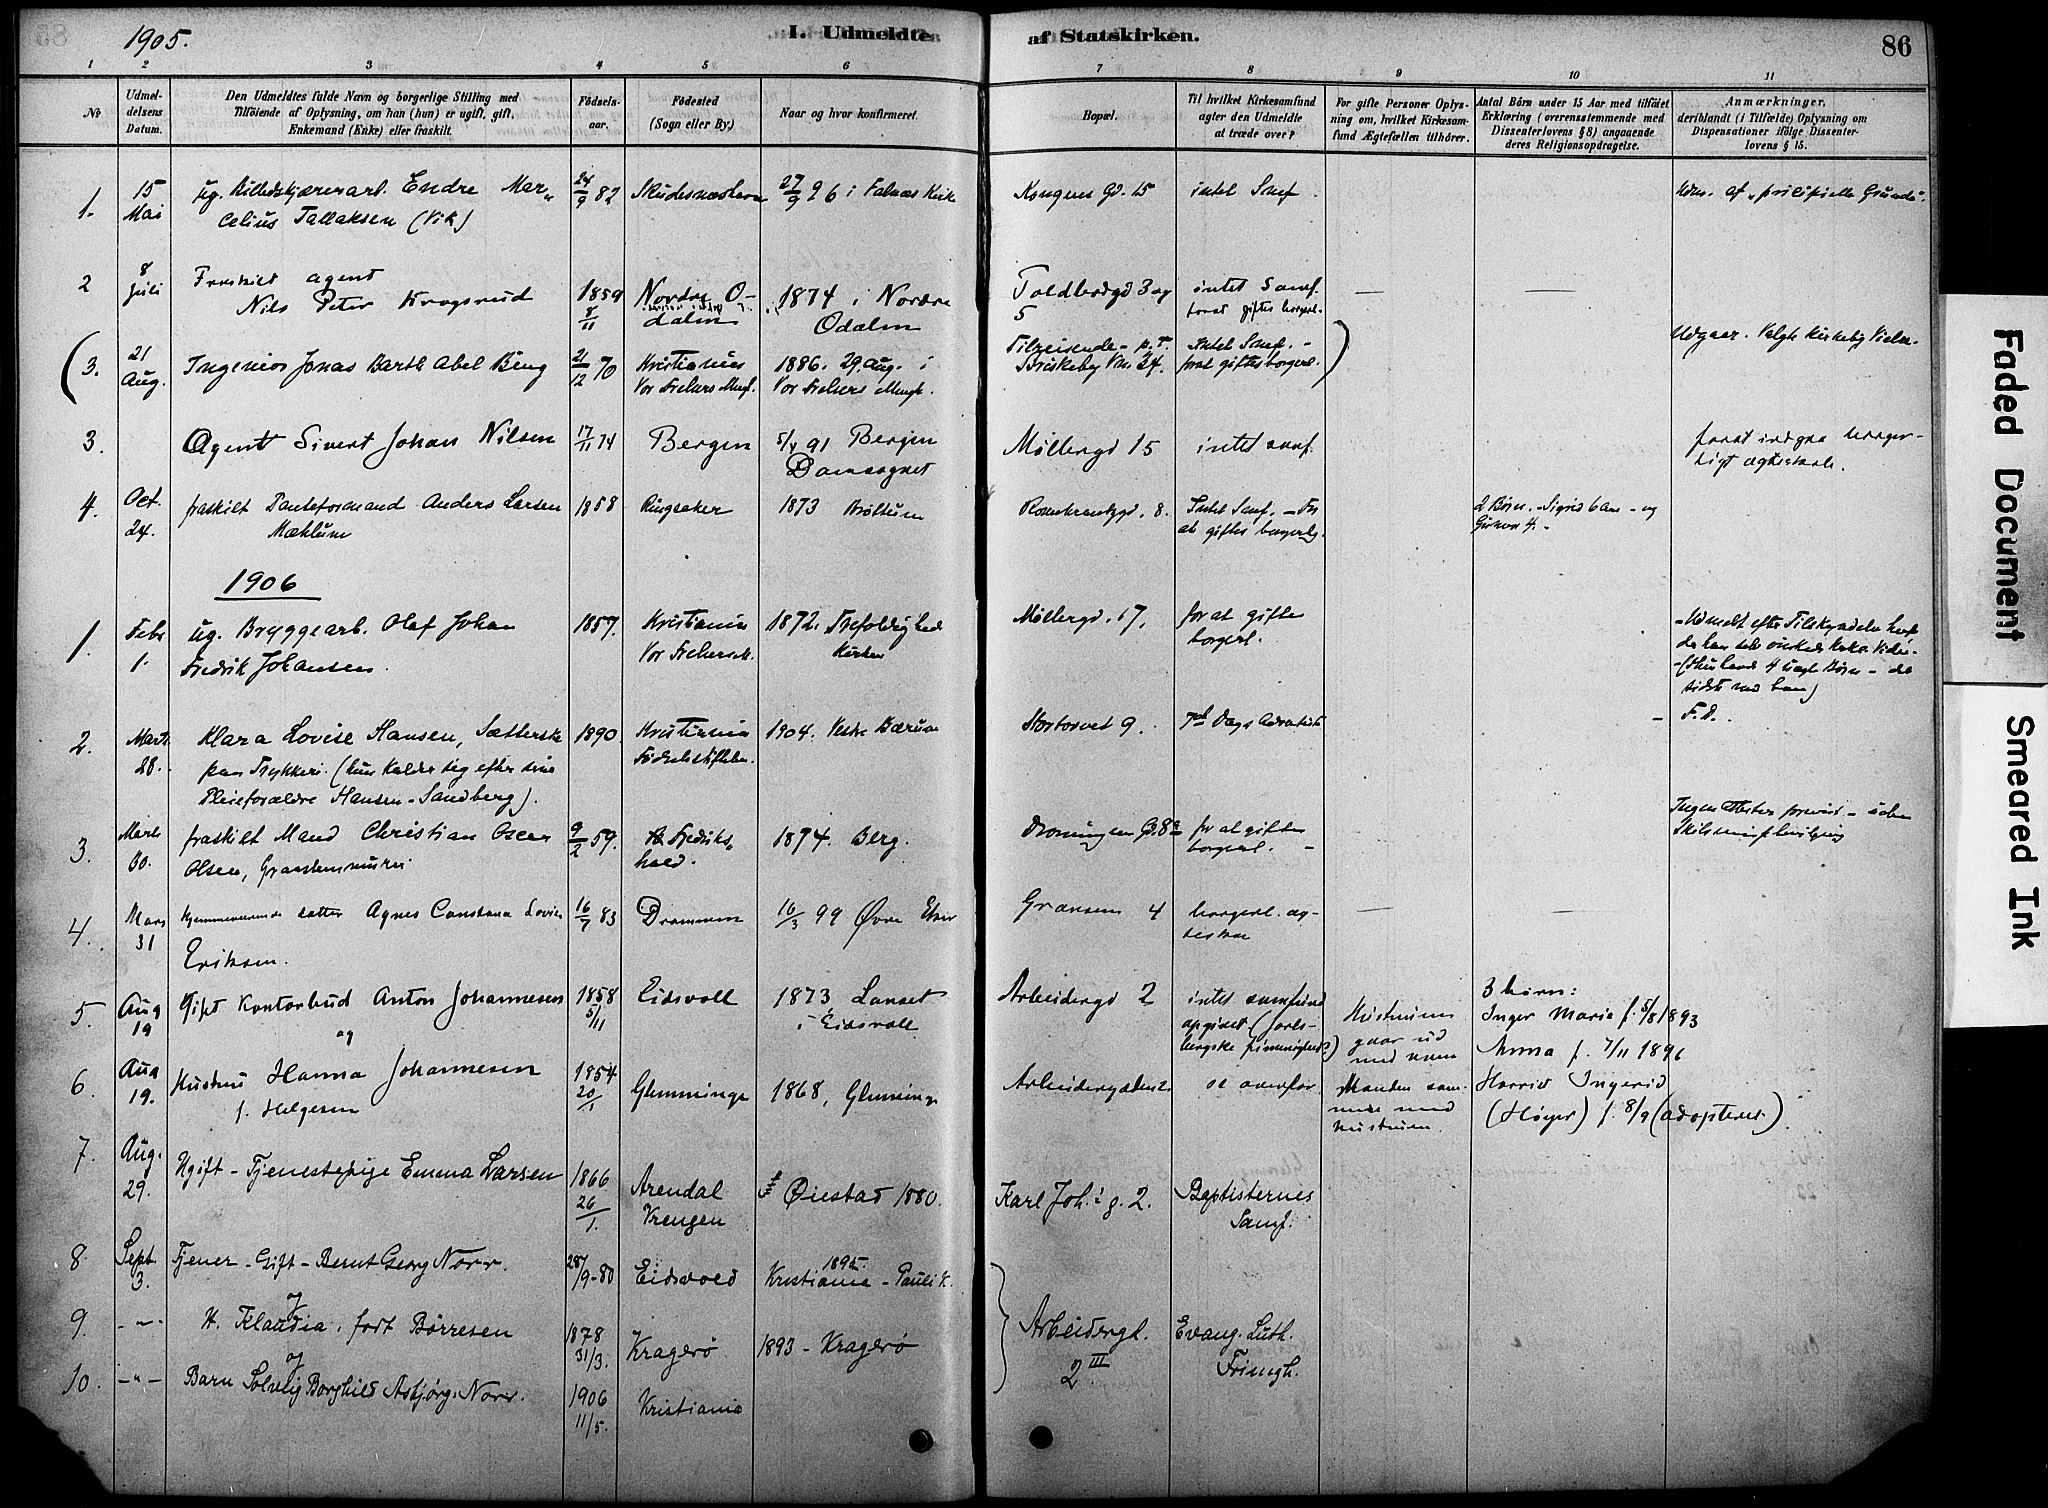 1905.
I. Udmeldte
af Statskirken.
86
1 2 3 4 5 6 7 8 9 10 11
No
Udmeldelsens Datum.
Den Udmeldtes fulde Navn og borgerlige Stilling med
Tilføiende af Oplysning, om han (hun) er ugift, gift,
Enkemand (Enke) eller fraskilt.
Fødselsaar.
Fødested
(Sogn eller By.)
Naar og hvor konfirmeret.
Bopæl.
Til hvilket Kirkesamfund
agter den Udmeldte
at træde over?
For gifte Personer Oplysning om, hvilket Kirkesamfund Ægtefællen tilhører.
Antal Børn under 15 Aar med tilføiet
Erklæring (overensstemmende med
Dissenterlovens § 8) angaaende
deres Religionsopdragelse.
Anmærkninger,
deriblandt (i Tilfælde) Oplysning om
Dispensationer ifølge Dissenterlovens § 15.
1. 15 Mai ug. Billedskjærerarb. Endre Marcelius Tallaksen (Vik) 24/9 82 27/9 96 i Falnæs Kirke Kongens Gd. 15 intet Samf
2 8 Juli Fraskilt agent
Nils Peter 1859 8/11 Nordre Odalen 1874 i Nordre Odalen Toldbodgd 3 og 5 intet Samf. forat giftes borgerl.
(3. 21 Aug. Ingeniør Jonas Barth Abel Bing 21/12 70 Kristiania Vor Frelsers Mengh. 1886. 29. Aug. i Vor Frelsers Mengh. Tilreisende - p.t. Briskeby Vn. 24. Intet Samf. - forat giftes borgerl. )
3. Agent Sivert Johan Nilsen 17/11 74 Bergen 5/4 91 Bergen Domsognet Møllergd 15 intet samf. forat indgaa borgerligt ægteskab.
4. Oct. 24. fraskilt Anders Larsen
Mæhlum 1858 Ringsaker 1873 Brøttum Rosenkrantzgd. 8. Intet Samf. - For at giftes borgerlig. 2 Børn. - Sigrid 6 Aar - og 4. -
1906
1. Febr 1. ug. Bryggearb. Olaf Johan
Fredrik Johansen. 1857. Kristiania Vor Frelsers M. 1872. Trefoldighed Kirken Møllergd. 17. for at giftes borgerl.
2. Marts 28. Klara Lovise Hansen, Sætterske
paa Trykkeri. (hun kalder sig efter sine
Pleieforældre Hansen-Sandberg). 1890. Kristiania Fødselsstiftelse. 1904. Vestre Bærum Stortorvet 9. 7nd Dags Adventist - F.D.
3. Marts 30. fraskilt Mand Christian Oscar
Olsen, 9/2 59. Fredrikshald. 1874. Berg. Dronningens G. 8 for at giftes borgerl. - Ingen Attester - uden
4. Mars 31 hjemmeværende datter Agnes Constance Lovise
Eriksen. 16/7 83 Drammen 16/3 99 Øvre Eker Grænsen 4 borgerl. ægteskab
5. Aug 19 Gift Kontorbud Anton Johannesen 1858 5/11 Eidsvoll 1873 Langset i Eidsvoll Arbeidergd 2 intet samfund opgivet (Jarlsbergske frimenighed?) Hustruen gaar ud med ham 3 børn:
Inger Marie f. 5/8 1893
og
Anna f. 7/11 1896
6. Aug 19. Hustru Hanna Johannesen
f. Helgesen 1854 20/1 Glemminge 1868, Glemminge Arbeidergaden 2. se ovenfor. Manden sammen med hustruen. Harrid Ingerid
(Høyer) f. 8/9 (adopteret)
7. Aug. 29. Ugift - Tjenestepige Emma Larsen 1866 26/1. Arendal Øiestad 1880. Karl Joh.s g. 2. Baptisternes Samf.
8. Sept. 3. Tjener - Gift - Bernt Georg Norr. 28/9-80 Eidsvold 1895. Kristiania - Pauli K.
og
9. -"- H. Klaudia, født Børresen 1878 31/3. Kragerø 1893 - Kragerø Arbeidergd. 2 III Evang. Luth. Frimgh.
og
10. -"- Barn Solveig Borghild Asbjørg Norr. 1906 11/5. Kristiania
Faded Document
Smeared Ink